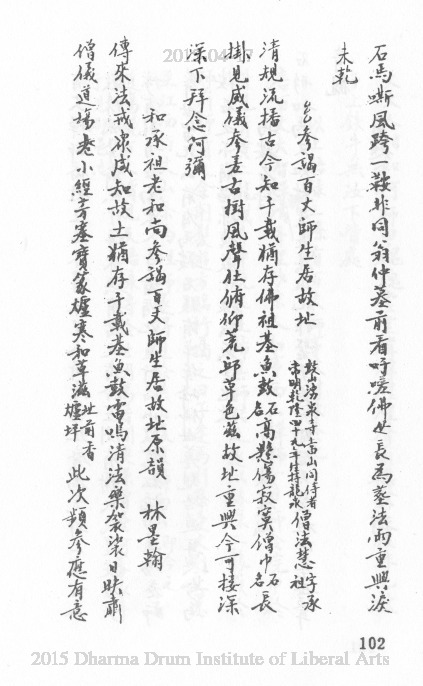 石馬嘶風跨一鞍非同翁仲墓前看吁嗟佛世長為蔭法雨重興淚
未乾
參謁百丈師生居故址
鼓山湧泉寺當山同侍者
清乾隆四十九年住持龍泉
僧法慧字承祖
清規流播古今知千載猶存佛祖基魚鼓石名高懸傷寂寞僧巾石名長
掛見威儀參差古樹風聲壯俯仰荒邱草色茲故址重興今可接深
深下拜念阿彌
和承祖老和尚參謁百丈師生居故址原韻 林星翰
傳來法戒眾咸知故土猶存千載基魚鼓雷鳴清法樂袈裟日映肅
僧儀道場老小經芳塞寶篆爐寒和草滋址前香爐坪此次類參應有意
102
2015 Dharma Drum Institute of Liberal Arts